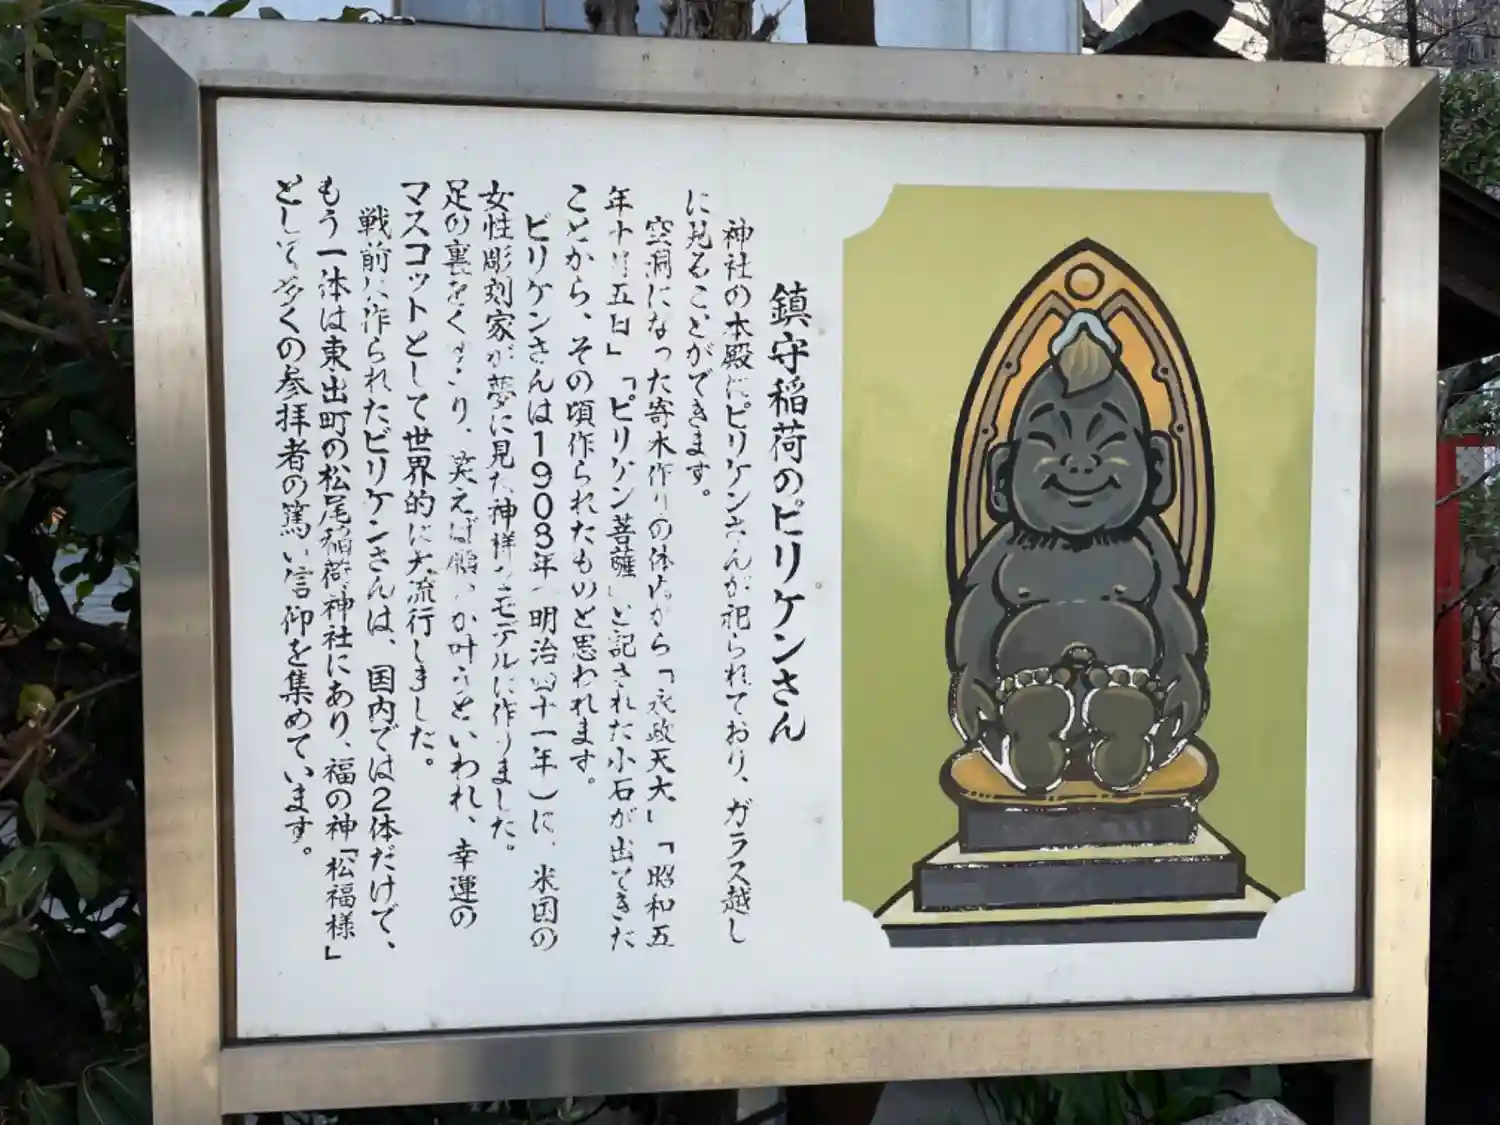 鎮守稲荷のビリケンさん
神社の本殿にビリケンさんが祀られており、ガラス越し
に見ることができます。
空洞になった寄木作りの体内から「永政天大」「昭和五
年十月五日」「ビリケン菩薩」と記された小石が出てきた
ことから、その頃作られたものと思われます。
ビリケンさんは1908年(明治四十一年)に、米国の
女性彫刻家が夢に見た神様をモデルに作りました。
足の裏をくすぐり、笑えば願いが叶うといわれ、幸運の
マスコットとして世界的に大流行しました。
戦前に作られたビリケンさんは、国内では2体だけで、
もう一体は東出町の松尾稲荷神社にあり、福の神「松福様」
として多くの参拝者の篤い信仰を集めています。